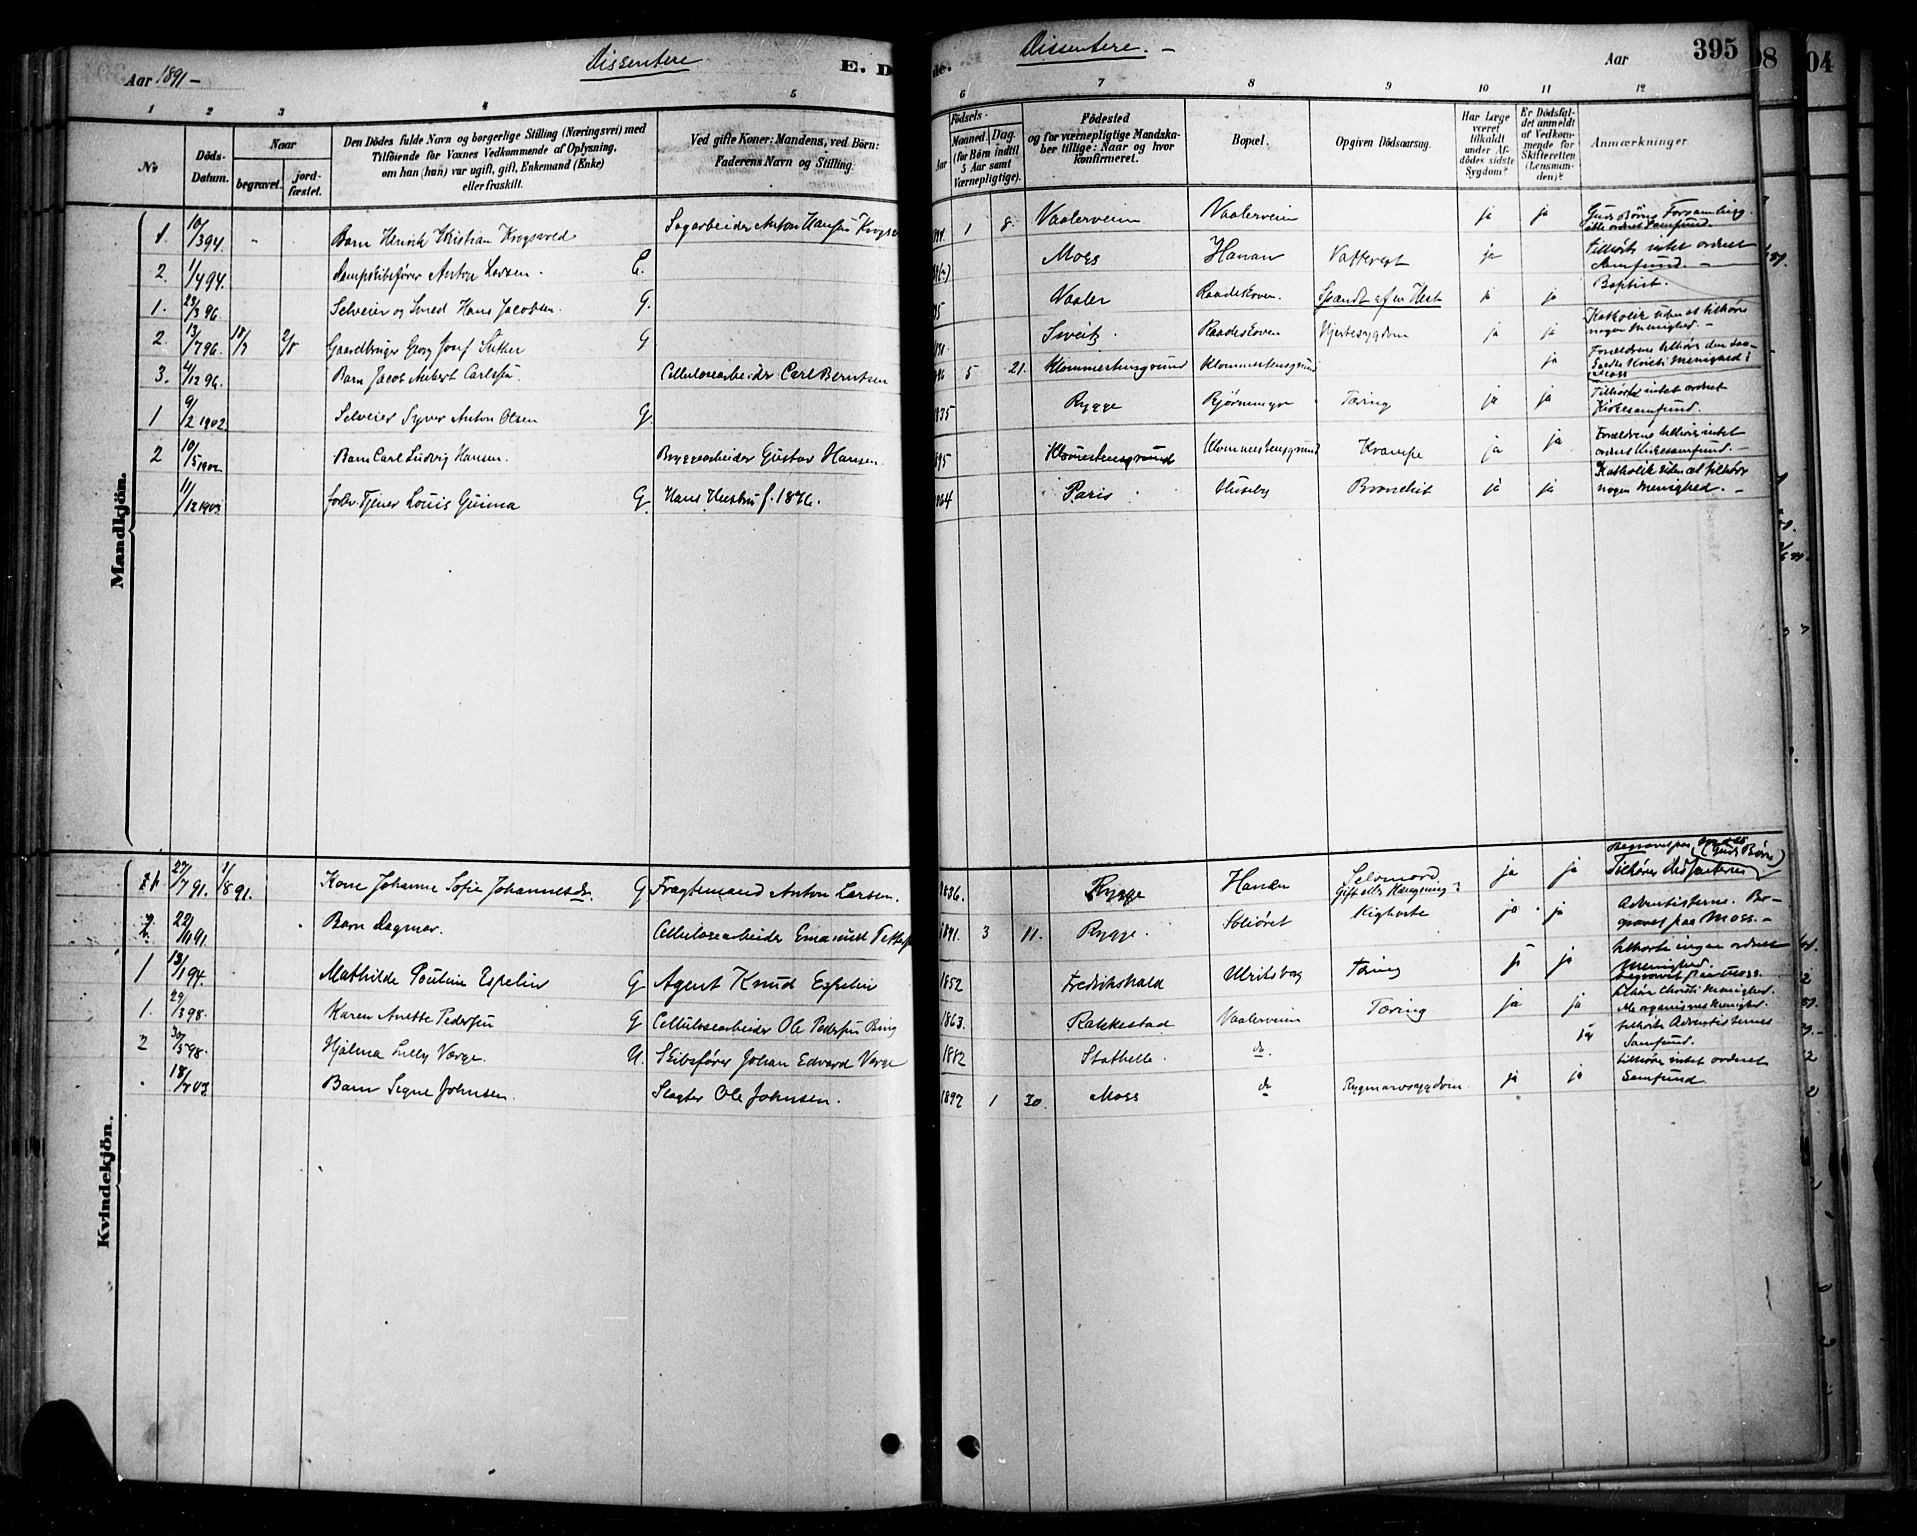 Aar 1891 - Dissentere E. D de. Dissentere. - Aar 395
1 2 3 4 5 6 7 8 9 10 11 12
No
Döds-Datum.
Naar
begravet.
jord-fæstet.
Den Dödes fulde Navn og borgerlige Stilling (Næringsvei) med
Tilföiende for Voxnes Vedkommende af Oplysning,
om han (hun) var ugift, gift, Enkemand (Enke)
eller fraskilt.
Ved gifte Koner: Mandens, ved Börn:
Faderens Navn og Stilling.
Födsels-
Aar
Maaned. Dag.
(for Børn indtil
5 Aar samt
Værnepligtige).
Födested
og for værnepligtige Mandska-
ber tillige: Naar og hvor
konfirmeret.
Bopæl.
Opgiven Dödsaarsag.
Har Læge
været
tilkaldt
under Af-
dödes sidste
Sygdom?
Er Dödsfal-
det anmeldt
af Vedkom-
mende for
Skifteretten
(Lensman-
den)?
Anmærkninger
Mandkjön.
1. 10/3 94. Barn Henrik Kristian Krogsvold Sagarbeider Anton Hansen 1 8. Vaalerveien Vaalerveien ja ja Guds Børns Forsamling.
2. 1/4 94. Dampskibsfører Anton Larsen. G. Moss Hanan ja Tilhørte intet ordnet
Samfund. -
1. 23/3 96. Selveier og Smed Hans Jacobsen. G. Vaaler Raadeskoven. Spandt af en Hest ja ja Baptist.
2. 13/7 96. 18/7 2/8 Gaardbruger Georg Josef Sutter G Sveitz Raadeskoven Hjertesygdom ja ja Katholik uden at tilhøre
nogen Menighed. -
3. /12 96. Barn Jacob Aubert Carlsen Cellulosearbeider Carl Berntsen 5 21. Klommestensgrund Klommestensgrund ja Forældrene tilhører den saa-
kaldte Kristi Menighed i
Moss
1 9/2 1902. Selveier Syver Anton Olsen G. Rygge Bjørnemyr Tæring ja ja Tilhørte intet ordnet
Kirkesamfund.
2 10/5 1902. Barn Carl Ludvig Hansen. Bryggearbeider Gustav Hansen. Klommestensgrund Krampe ja ja Forældrene tilhører intet
ordnet Kirkesamfund. -
11/12 1903. Tjener Louis Guima G. Paris Huseby Bronchit ja ja Katholik uden at tilhøre
nogen Menighed. -
Kvindekjön.
27/7 91. 1/8 91. Kone Johanne Sofie Johannesdr. G Fragtemand Anton Larsen. 1836. Rygge Hanan Selvmord
Gift eller Hængning? ja ja Tilhører Dissenterne (Guds Børn)
2. 22/11 91. Barn Dagmar. Cellulosearbeider Emanuel 1891. 3 11. Rygge. Kighoste ja ja Adventisterne. Be-
gravet paa Moss. -
1 13/1 94. Mathilde Pouline Espelin G Agent Knud Espelin 1852 Fredrikshald Ulriksborg Tæring ja ja tilhørte ingen ordnet
Menighed.
begravet paa Moss.
1. 29/3 98. Karen Anette Pedersen G Cellulosearbeider Ole Pedersen Ring 1863. Rakkestad Vaalerveien Tæring ja ja tilhører Christi Menighed.
2 30/5 98. Hjalma Lilly Værge. U. Skibsfører Johan Edvard Værge 1882 Stathelle do. tilhørte Adventisternes
Samfund.
18/ 03. Barn Signe Johnsen. Slagter Ole Johnsen. 1897 1 30. Moss do Rygmarvssygdom. ja ja tilhører intet ordnet
Samfund.